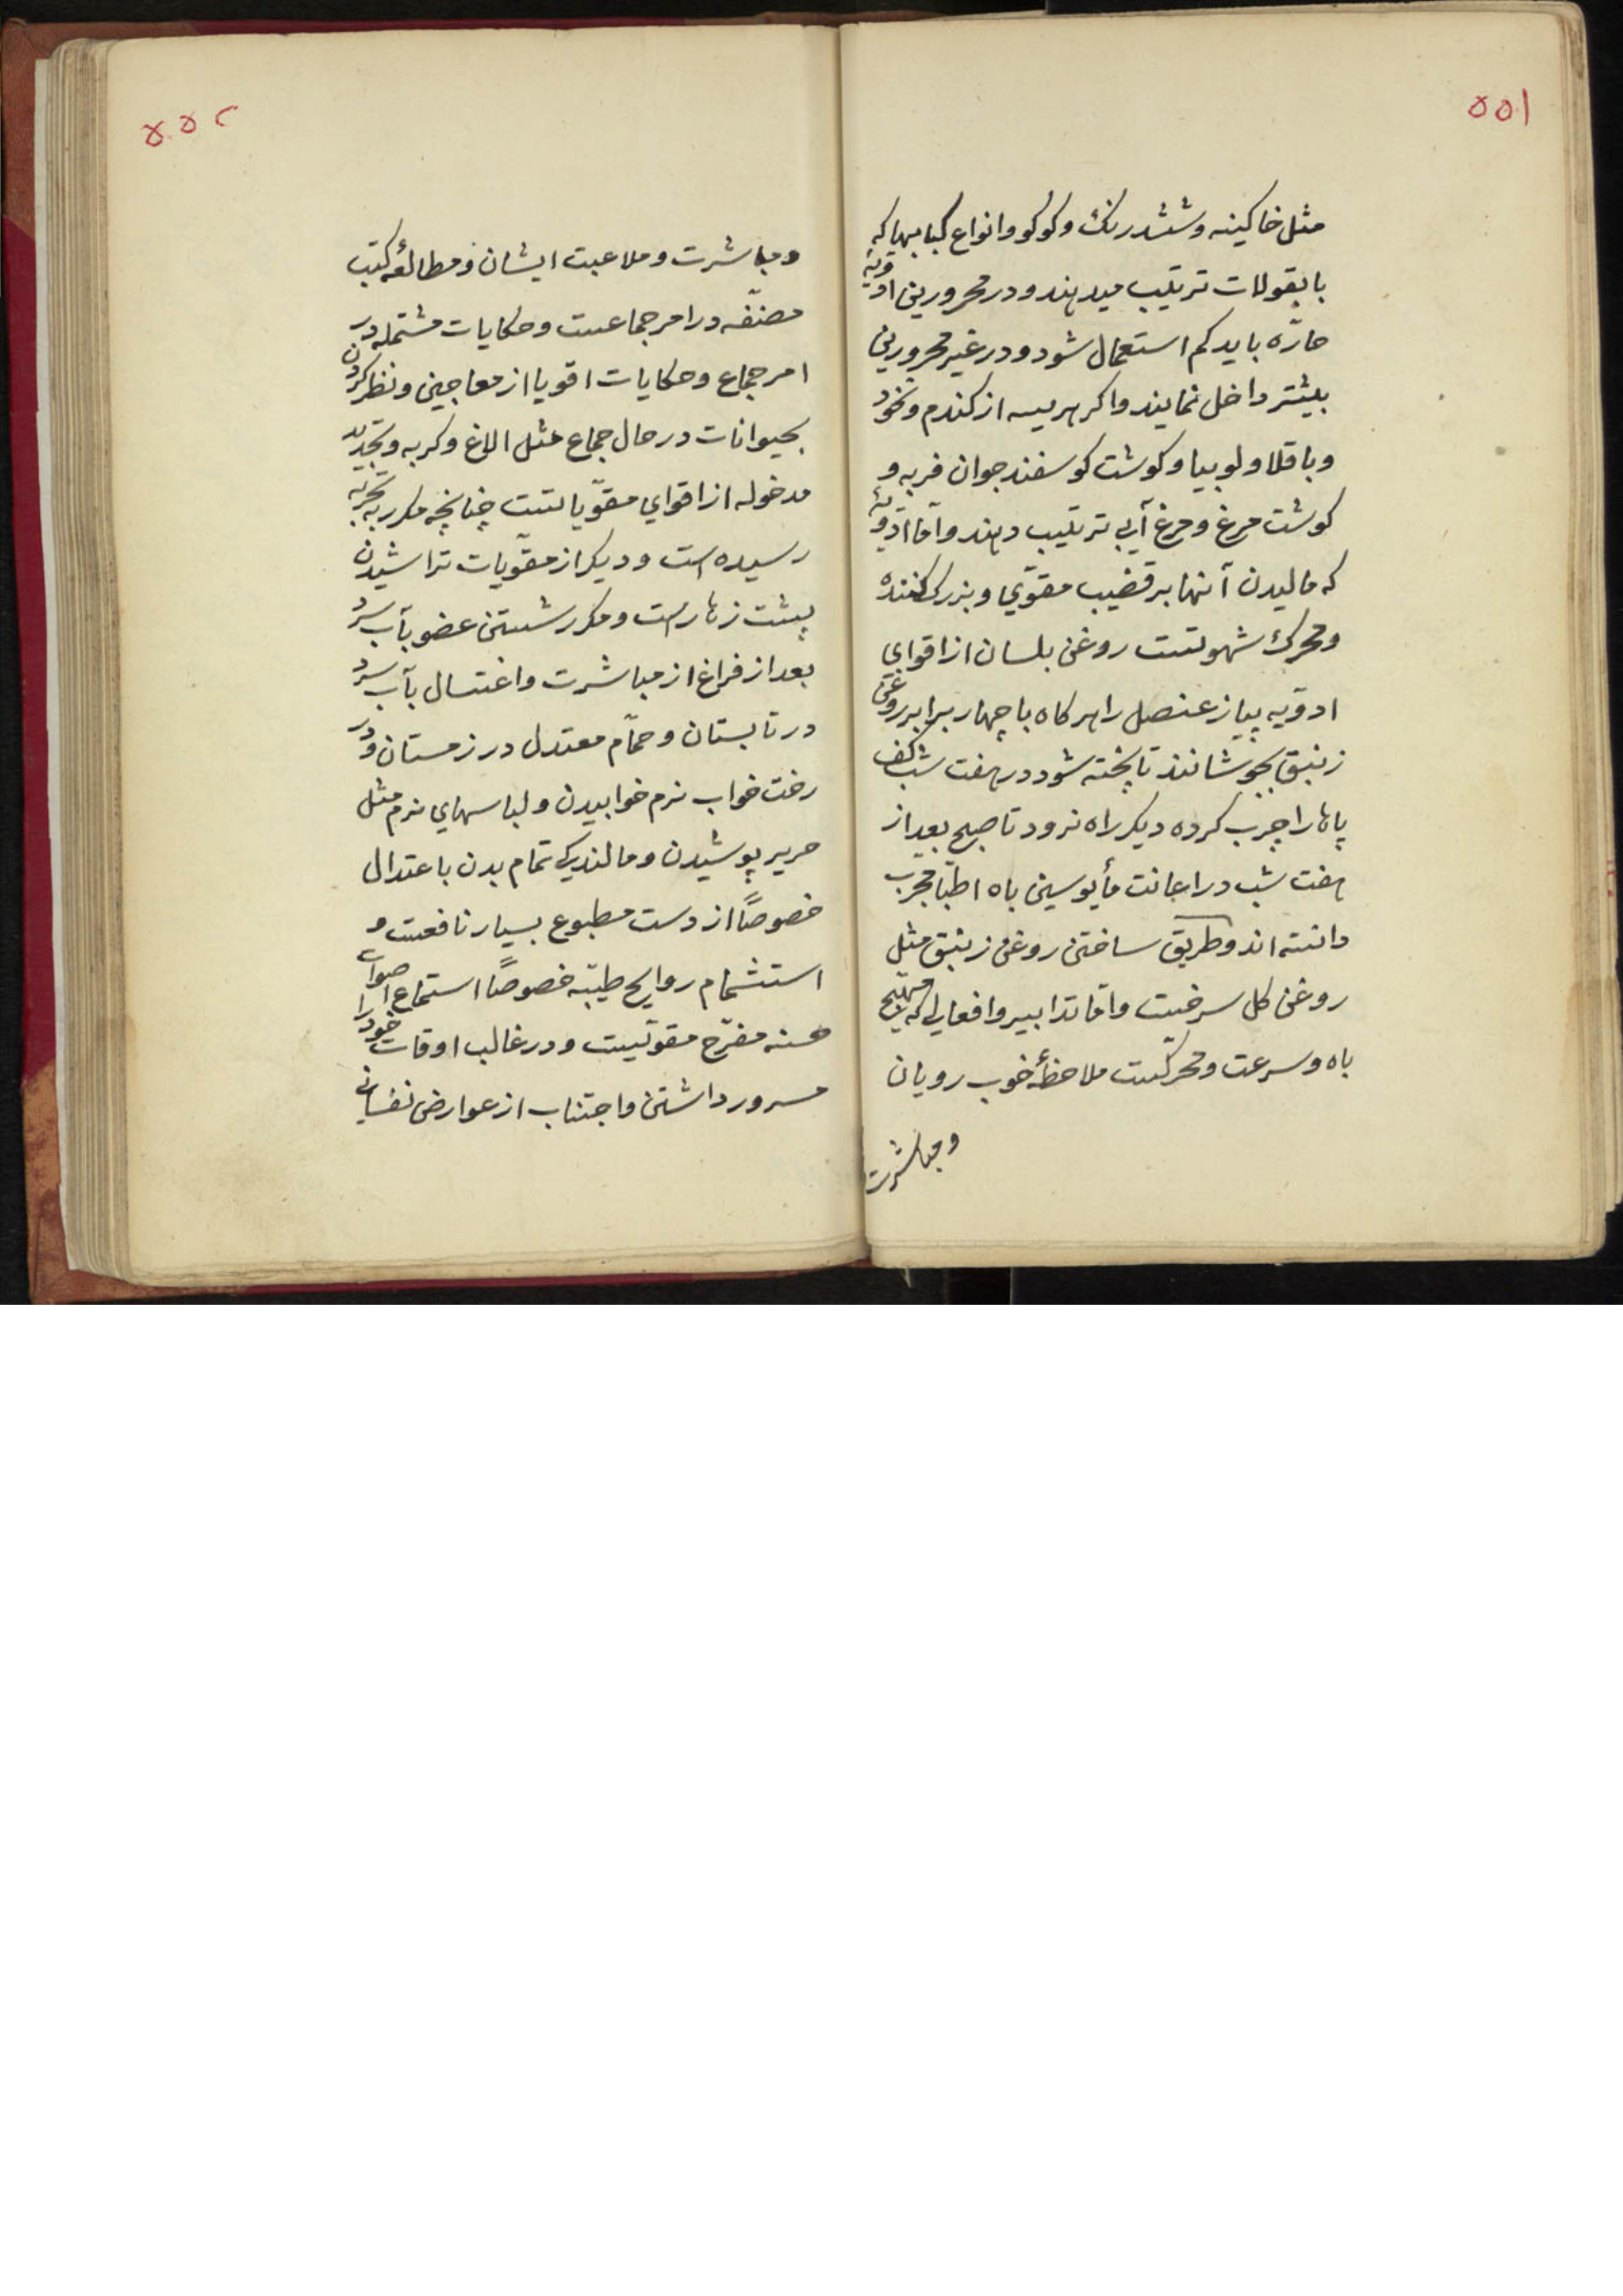 ٥٥١
مثل خاکینه و ششدرنك و کوکو و انواع کبابها که
با بقولات ترتیب میدهند و در محرورین ادویه
حارّه باید کم استعمال شود و در غیر محرورین
بیشتر داخل نمایند و اکر هریسه از کندم و نخود
و باقلا و لوبیا و کوشت کوسفند جوان فربه و
کوشت مرغ و مرغ آبی ترتیب دهند و اما ادویهٔ
که مالیدن آنها بر قضیب مقوّي و بزرك کننده
و محرك شهوتست روغن بلسان از اقوای
ادویه پیاز عنصل را هر کاه با چهار برابر روغن
زنبق بجوشانند تا پخته شود در هفت شب کف
پاها را چرب کرده دیکر راه نرود تا صبح بعد از
هفت شب در اعانت مأیوسین باه اطبا مجرب
دانسته اند و طریق ساختن روغن زنبق مثل
روغن کل سرخست و اما تدابیر و افعالی که مهیّج
باه و سرعت و محرکست ملاحظهٔ خوب رویان
و مباشرت
٥٥٢
و مباشرت و ملاعبت ایشان و مطالعهٔ کتب
مصنّفه در امر جماعست و حکایات مشتمله در
امر جماع و حکایات اقویا از معاجین و نظر کردن
بحیوانات در حال جماع مثل الاغ و کربه و تجدید
مدخوله از اقوای مقوّیاتست چنانچه مکرر بتجربه
رسیده است و دیکر از مقوّیات تراشیدن
پشت زهار است و مکرر شستن عضو بآب سرد
بعد از فراغ از مباشرت و اغتسال بآب سرد
در تابستان و حمّام معتدل در زمستان و در
رخت خواب نرم خوابیدن و لباسهای نرم مثل
حریر پوشیدن و مالندیکی تمام بدن باعتدال
خصوصاً از دست مطبوع بسیار نافعست و
استشمام روایح طیّبه خصوصاً استماع اصوات
حسنه مفرّح مقوّیست و در غالب اوقات خود را
مسرور داشتن و اجتناب از عوارض نفسانی